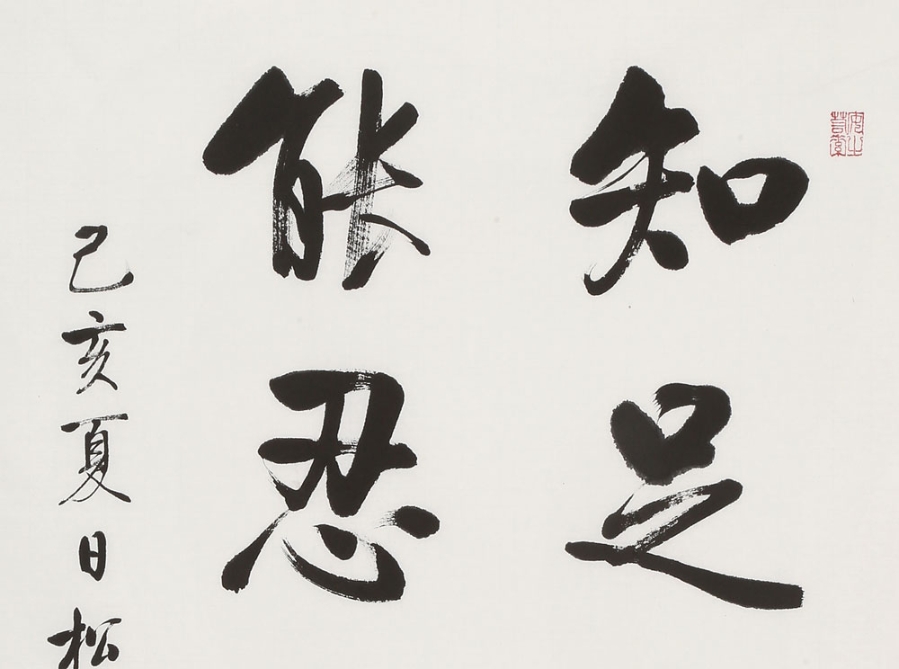 知足
能忍
己亥夏日松